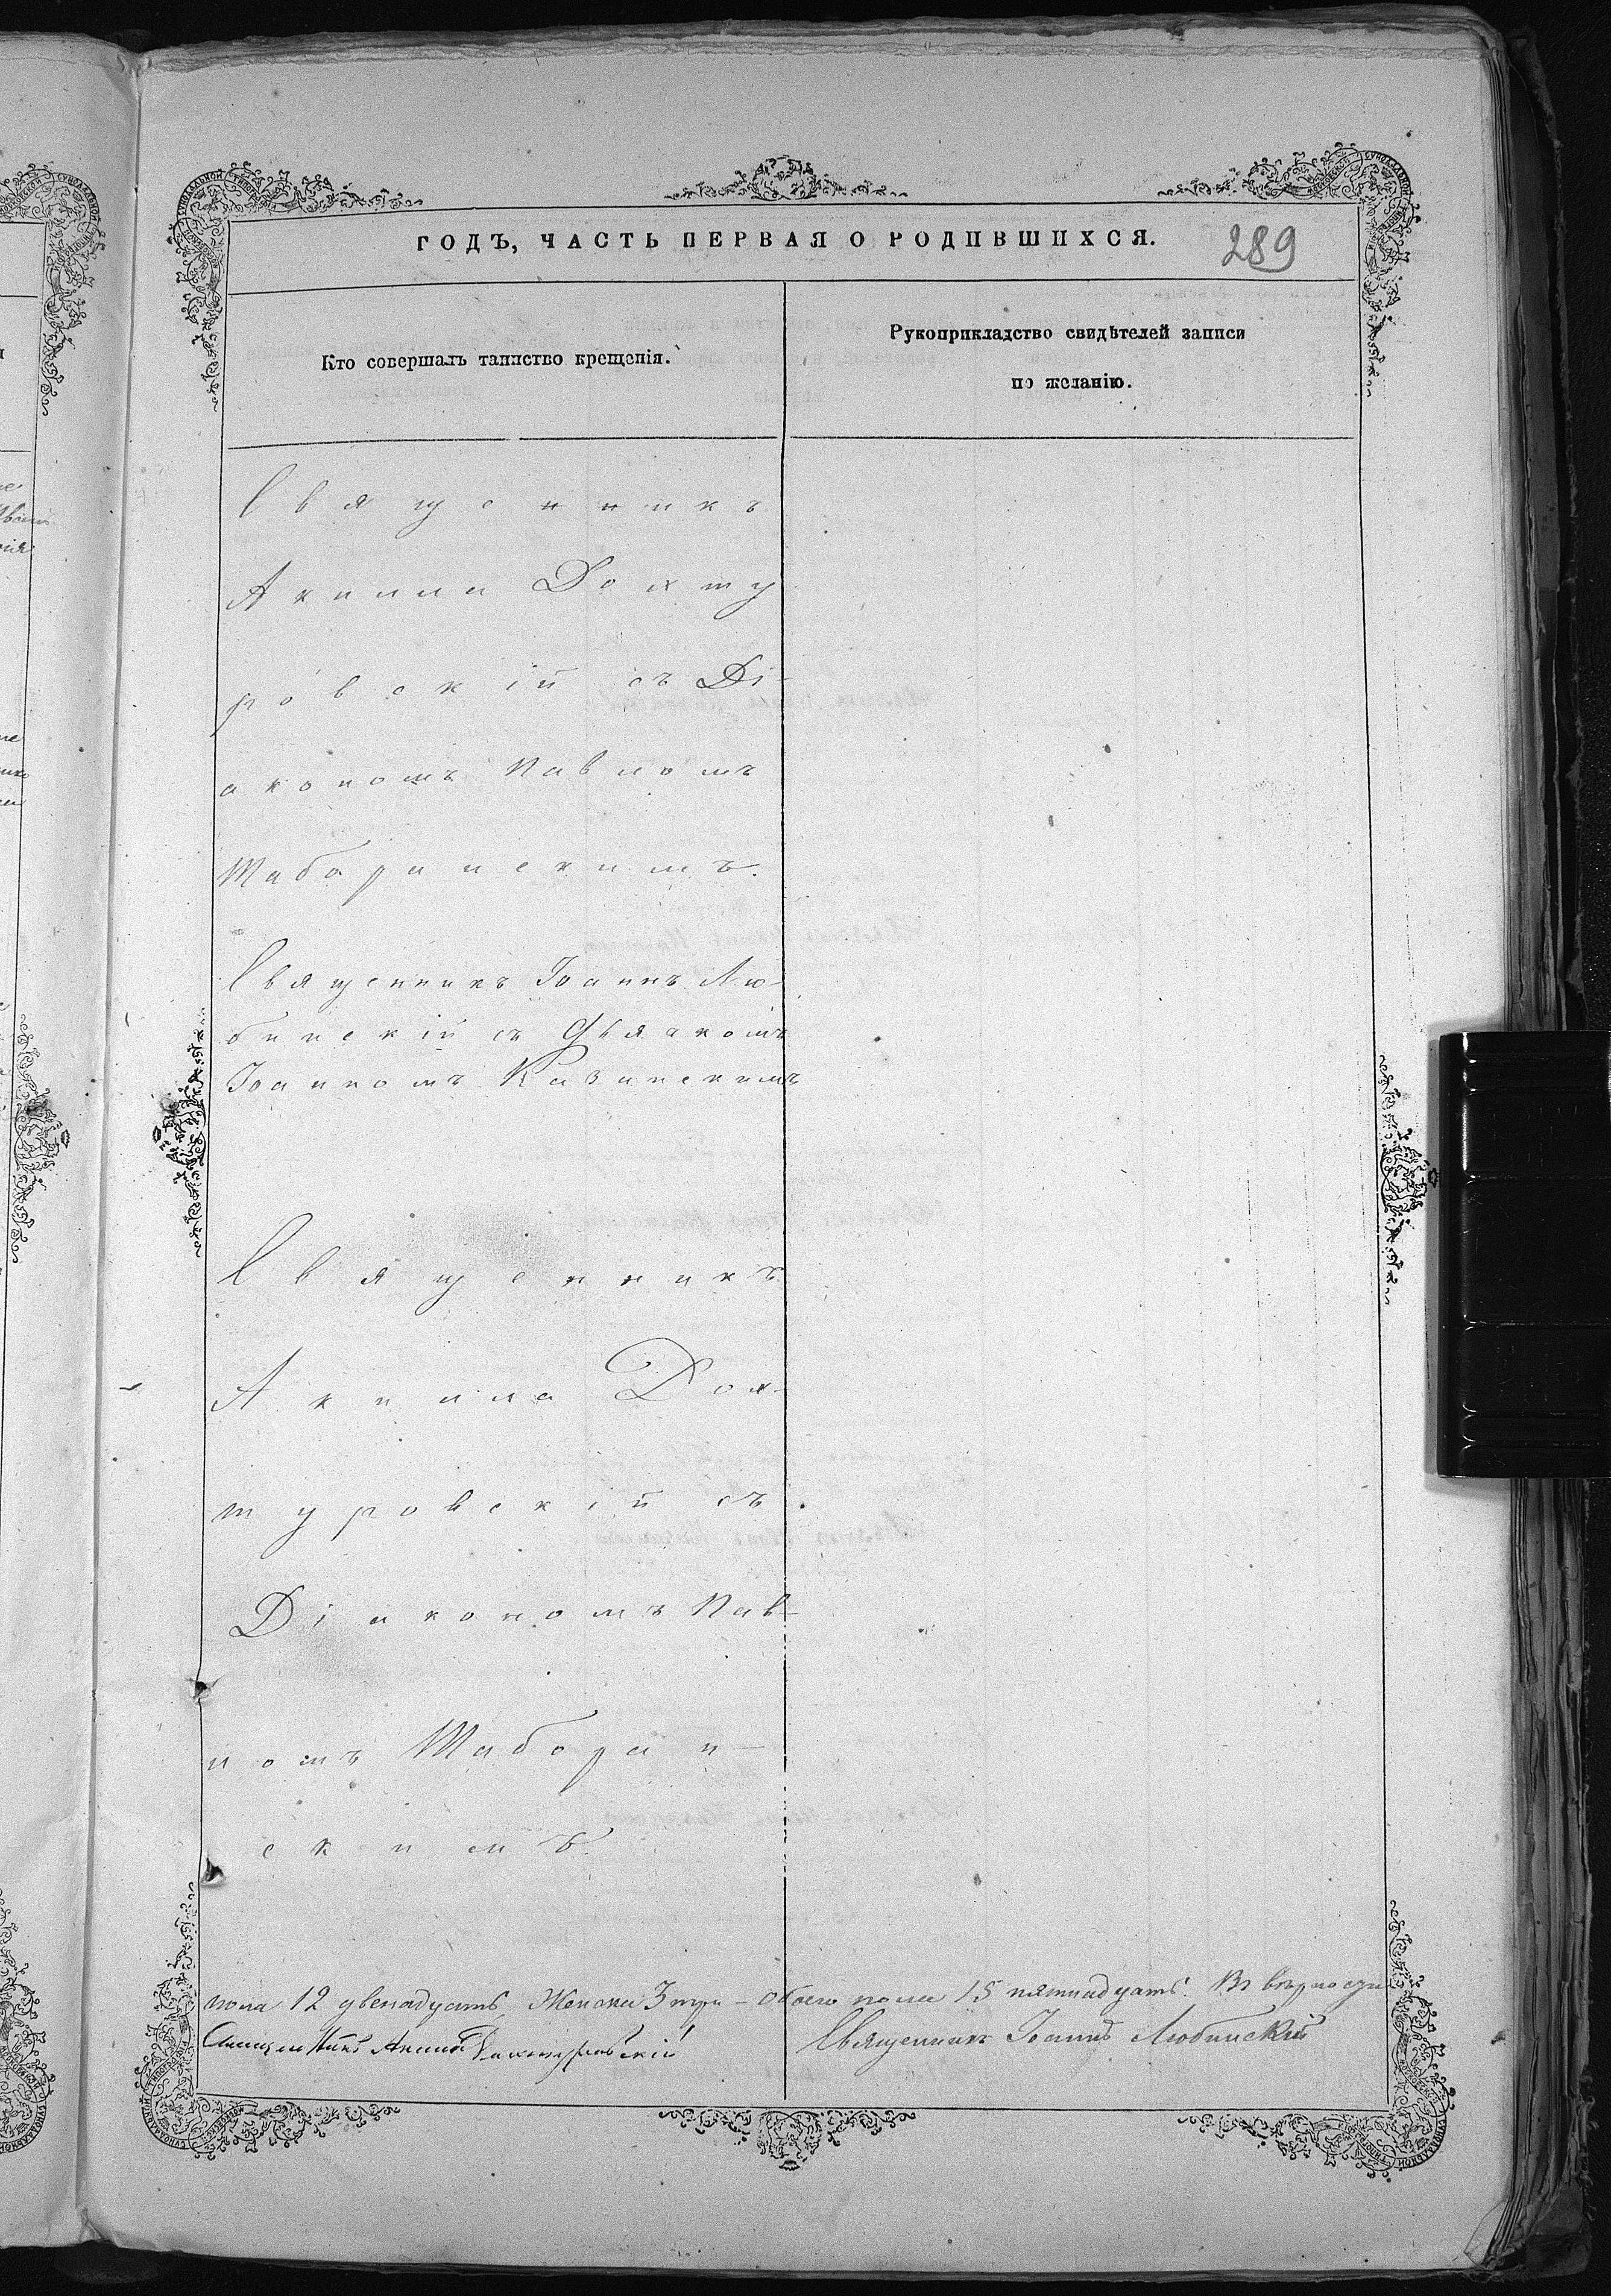 ГОДЪ, ЧАСТЬ ПЕРВАЯ О РОДИВШИХСЯ.
289
Кто совершалъ таинство крещенія.
Рукоприкладство свидѣтелей записи
по желанію.
Священникъ
Акилла Дохту
ровскій съ Ді-
акономъ Павломъ
Шаборинскимъ.
Священникъ Іоаннъ Лю-
бинскій съ Дьячкомъ
Іоанномъ Казинскимъ
Священникъ
Акила Дох-
туровскій съ
Діакономъ Пав-
ломъ Шаборин-
скимъ.
пола 12 двенадцать, Женска 3 три - Обоего пола 15 пятнадцать. Въ верности
Священникъ Акила Дохтуровскій
Священникъ Іоаннъ Любинскій